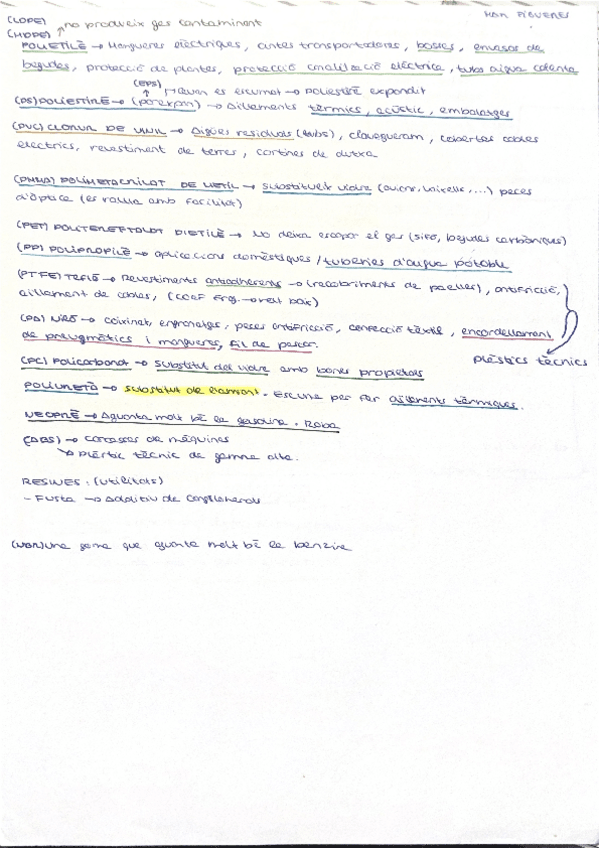 (LDPE) no produeix gas contaminant
MAR FIGUERES
(HDPE)
POLIETILÈ → Mangueres elèctriques, cintes transportadores, bosses, envasos de
begudes, protecció de plantes, protecció canalització elèctrica, tubs aigua calenta
(EPS) quan es escumat → poliestirè expandit
(PS) POLIESTIRÈ → (porexpan) → aillaments tèrmics, acústic, embalatges
(PVC) CLORUR DE VINIL → Aigües residuals (tubs), clavegueram, cobertes cables
electrics, revestiment de terres, cortines de dutxa
(PMMA) POLIMETACRILAT DE METIL → substitueix vidre (avions, vaixells,...) peces
d'òptica (es ratlla amb facilitat)
(PET) DIETILÈ → No deixa escapar el gas (sifó, begudes carbòniques)
(PP) POLIPROPILÈ → aplicacions domèstiques / tuberies d'aigua potable
(PTFE) TEFLÓ → Revestiments antiadherents → (recobriments de paelles), antifricció,
aillament de cables, (coef. Freg. → molt baix)
(PA) NILÓ → coixinets, engranatges, peces antifricció, confecció tèxtil, encordellament
de pneumàtics i mangueres, fil de pescar.
plàstics tècnics
(PC) Policarbonat → substitut del vidre amb bones propietats
POLIURETÀ → substitut de l'amiant. Escuma per fer aillaments tèrmiques.
NEOPRÈ → Aguanta molt bé la gasolina. Roba
(ABS) → carcasses de màquines
↘ plàstic tècnic de gamma alta.
RESINES: (utilitats)
- Fusta → Additiu de conglomerats
(NBR) una goma que aguanta molt bé la benzina